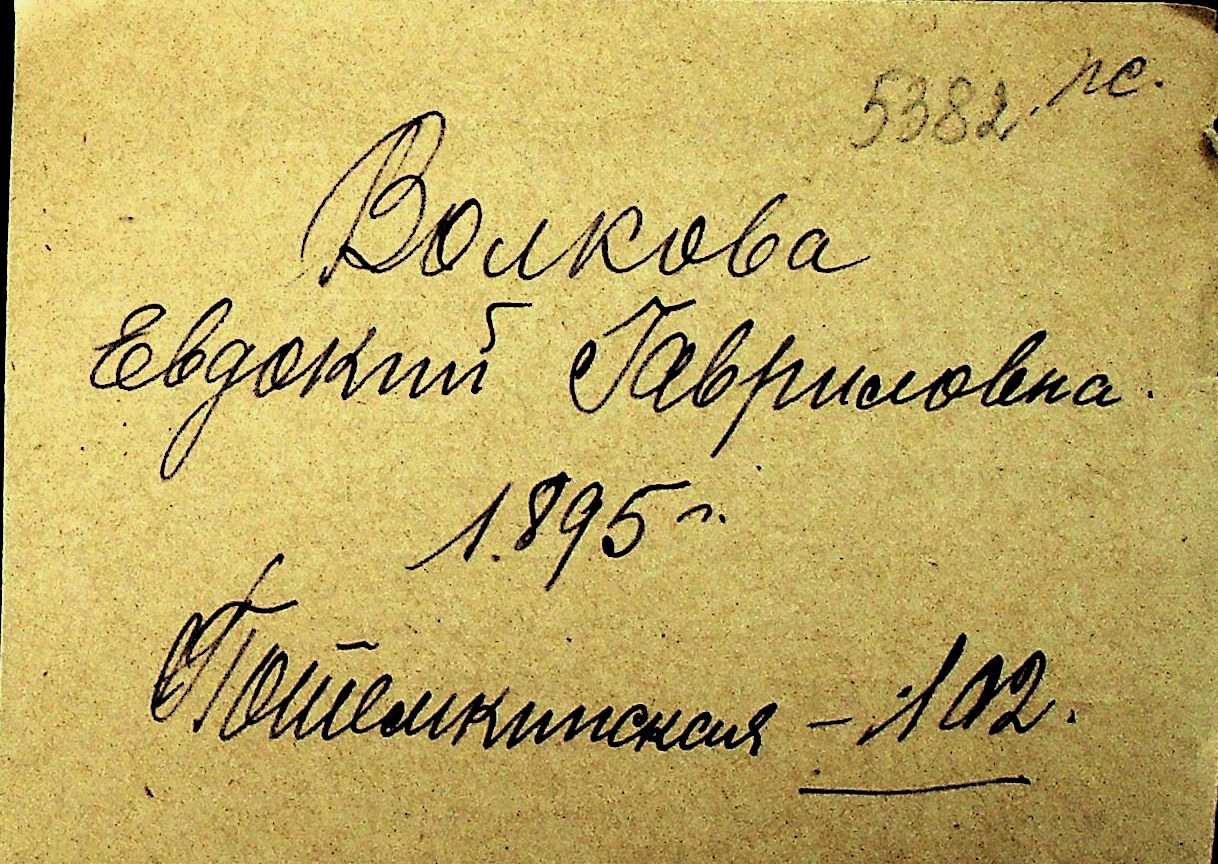 5382. пс.
Волкова
Евдокий Гавриловна.
1895 г.
Потемкинская – 102.